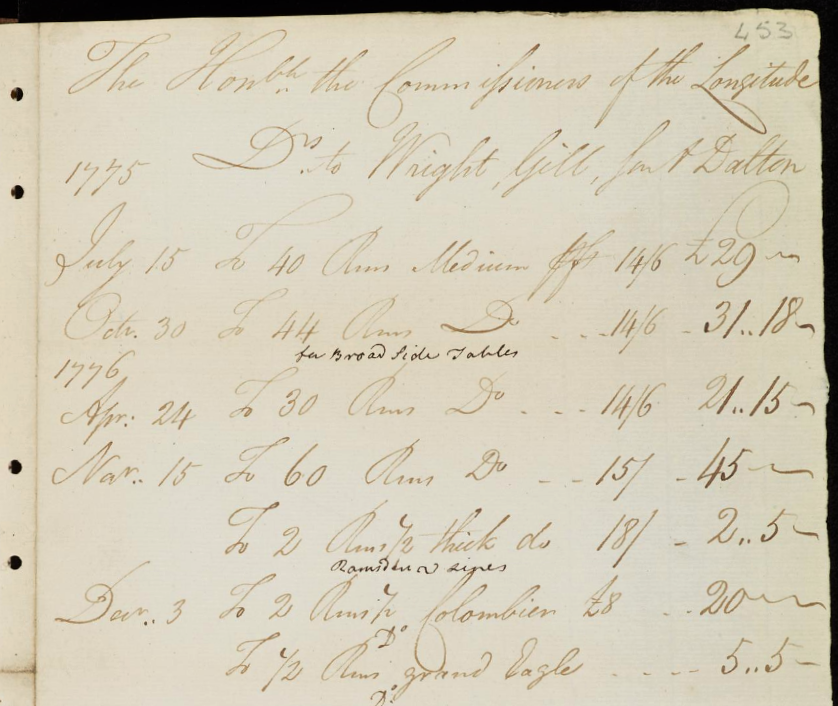 453
The Honble. the Commissioners of the Longitude
1775 Drs. to Wright, Gill, Son & Dalton
July 15 To 40 Rms Medium 14/6 £29 —
Octr. 30 To 44 Rms Do . - - 14/6 - 31..18 -
for Broad Side Tables
1776
Apr: 24 To 30 Rms Do . - - 14/6 21..15 -
Nov.. 15 To 60 Rms Do - - 15/ - 45 —
To 2 Rms 1/2 thick do 18/ - 2..5 -
Ramsden's Lines
Decr.. 3 To 2 Rms 1/2 Colombier £8 .. 20 —
Do
To 1/2 Rms grand Eagle - - - - 5..5 -
Do